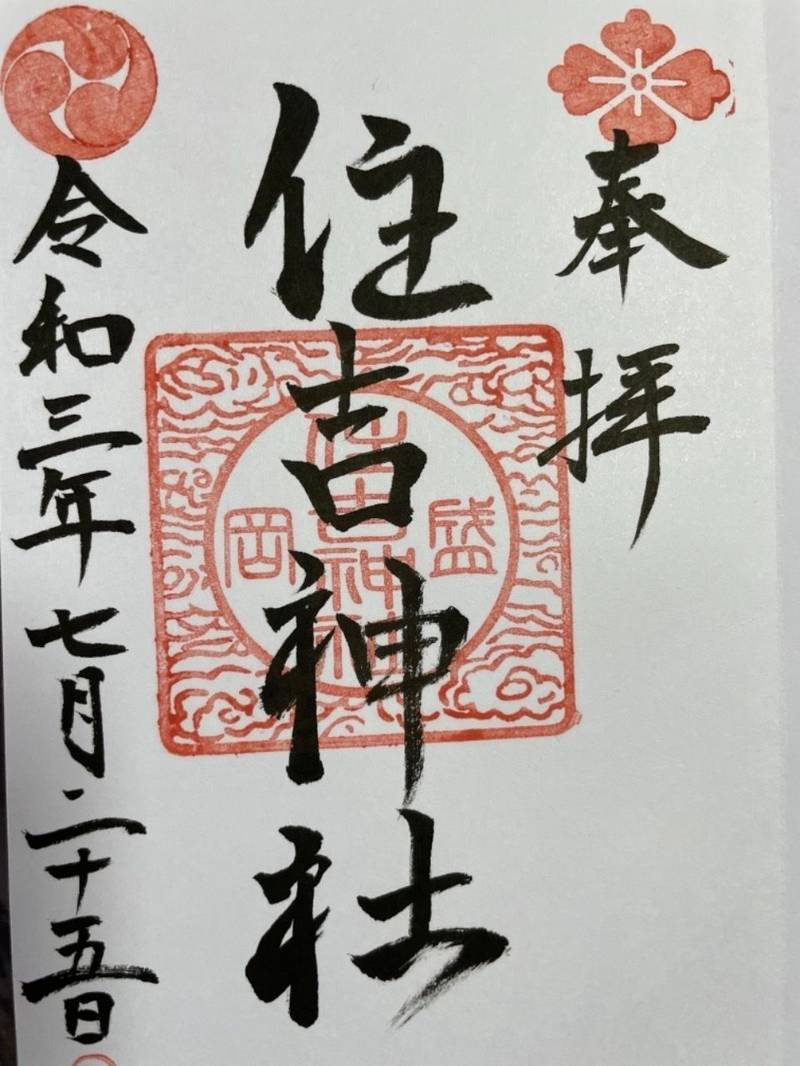 奉拝
住吉神社
盛
住吉神社
岡
令和三年七月二十五日